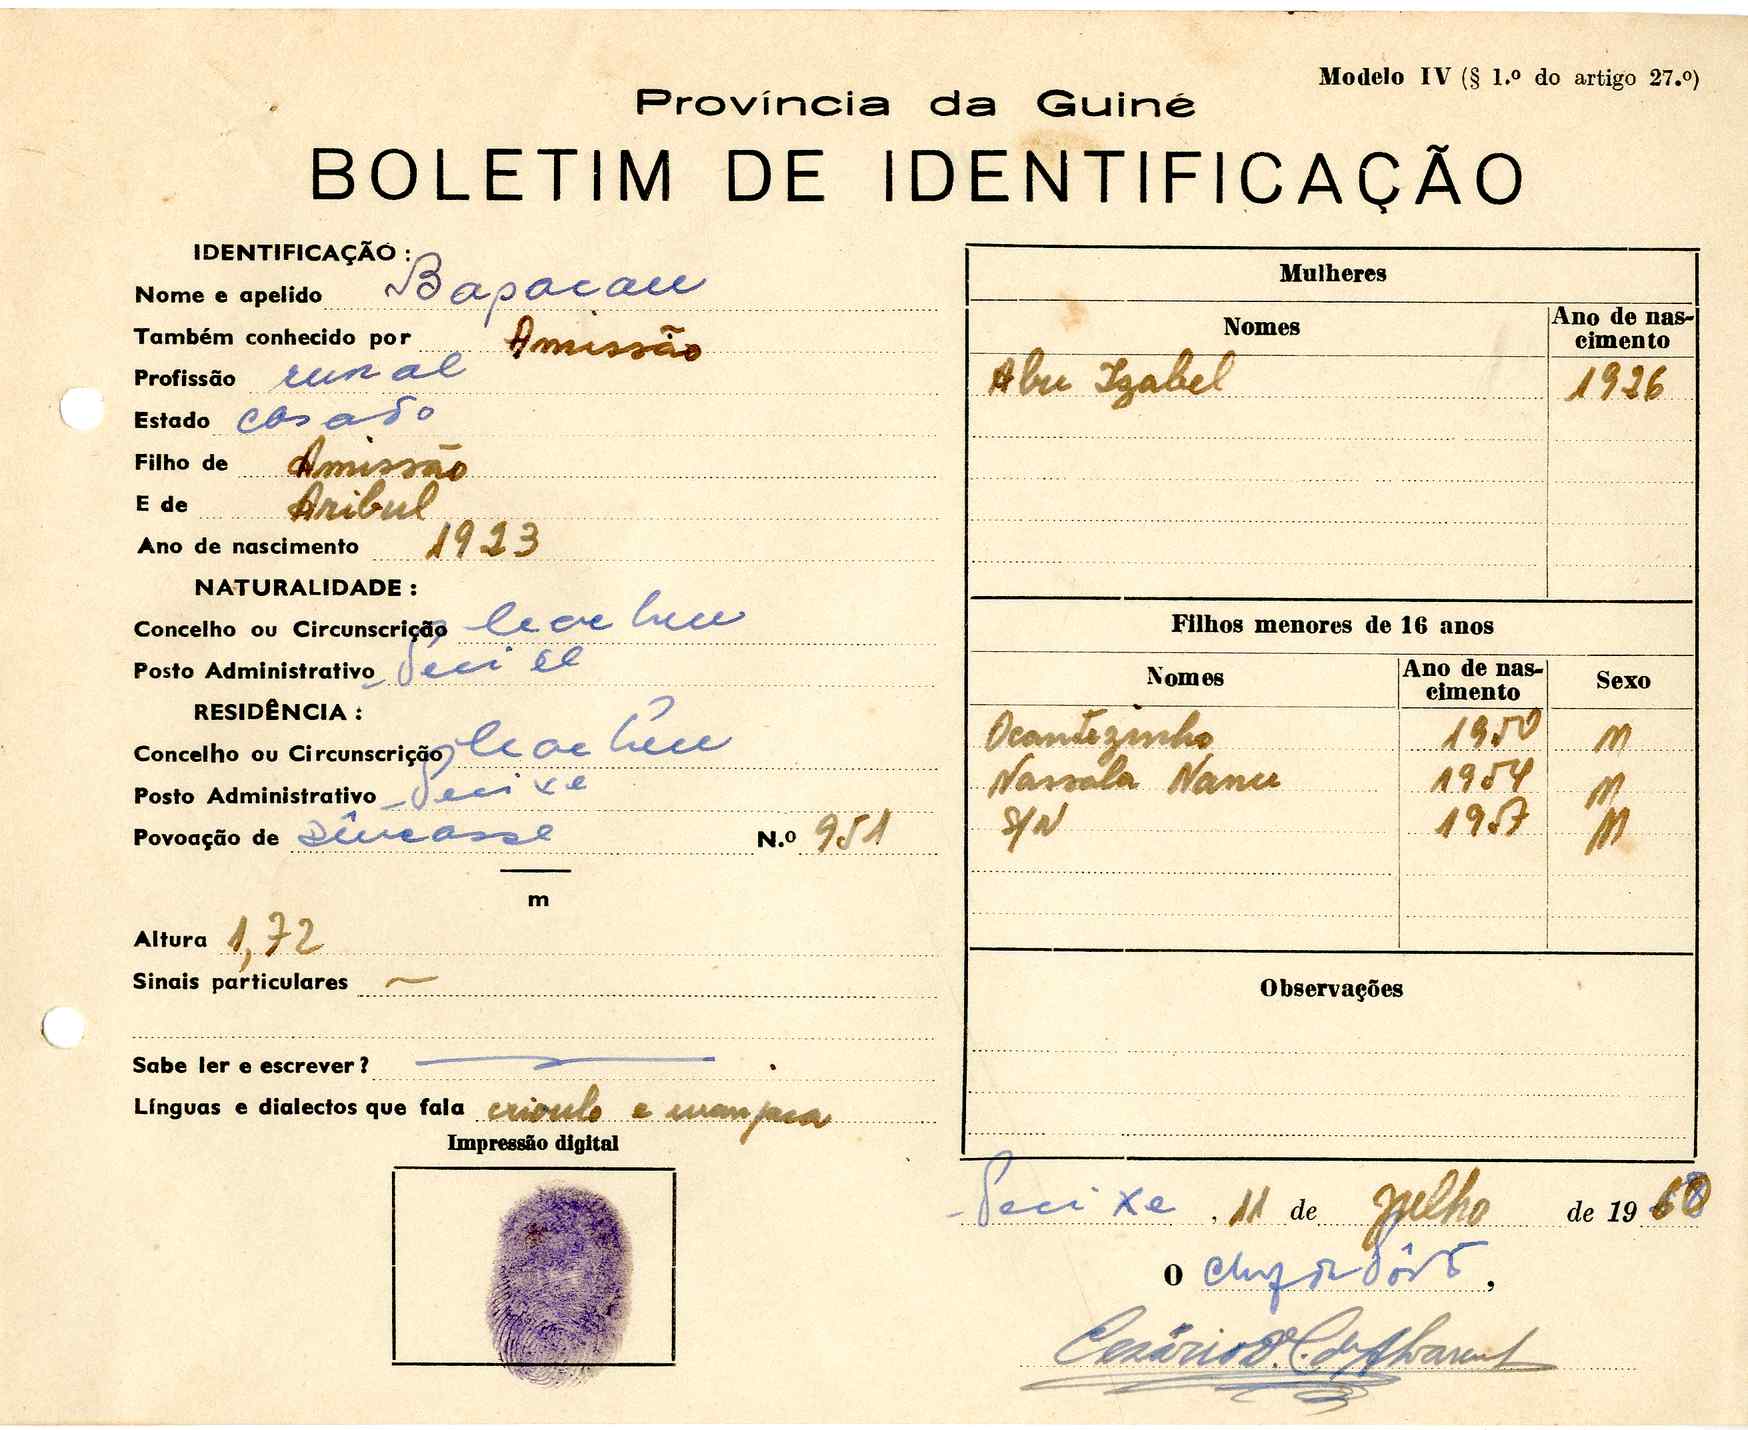 Modelo IV (§ 1.º do artigo 27.º)
Província da Guiné
BOLETIM DE IDENTIFICAÇÃO
IDENTIFICAÇÃO :
Nome e apelido Bapacau
Também conhecido por Amissão
Profissão rural
Estado casado
Filho de Amissão
E de Aribul
Ano de nascimento 1923
NATURALIDADE :
Concelho ou Circunscrição Cacheu
Posto Administrativo Pecixe
RESIDÊNCIA :
Concelho ou Circunscrição Cacheu
Posto Administrativo Pecixe
Povoação de N.º 951
m
Altura 1,72
Sinais particulares
Sabe ler e escrever ?
Línguas e dialectos que fala crioulo e
Impressão digital
Mulheres
Nomes Ano de nas-
cimento
Abu Izabel 1926
Filhos menores de 16 anos
Nomes Ano de nas-
cimento Sexo
Ocantezinho 1950 M
Nassala Nanu 1954 M
S/N 1957 M
Observações
Pecixe, 11 de Julho de 1960
O Chefe do Pôsto,